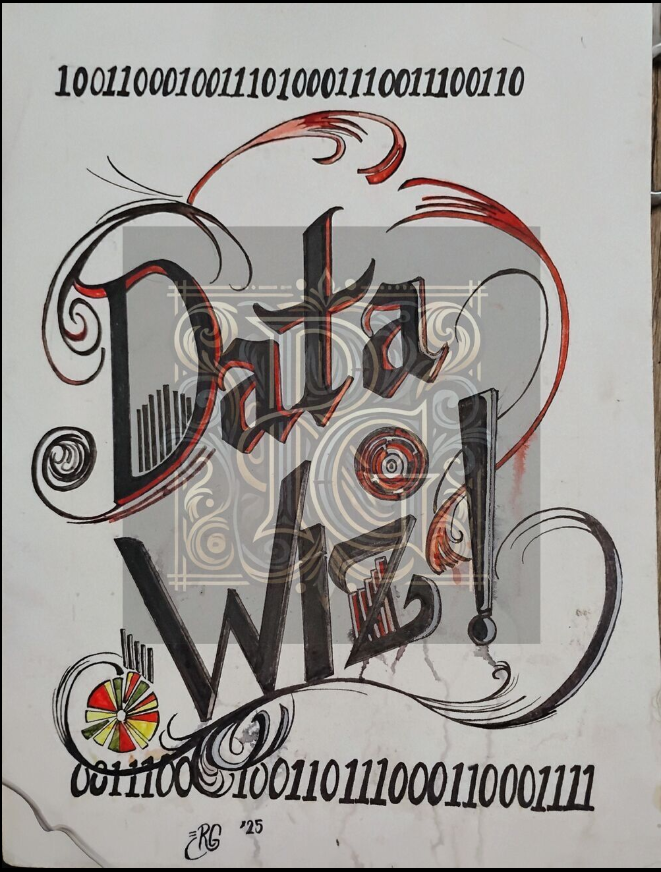 10011000100111010001110011100110
Data
Wiz!
0011100 100110111000110001111
ERG '25